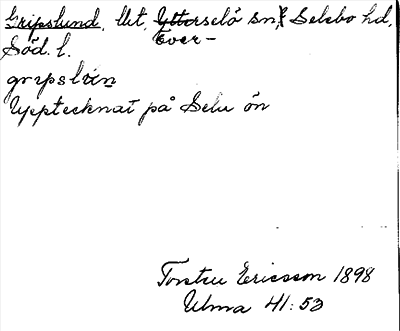 Gripslund, Utt, Ytterselö sn, Selebo hd,
Över-
Söd. l.
gripslun
Upptecknat på Selu ön
Torsten Ericsson 1898
Ulma 41:53